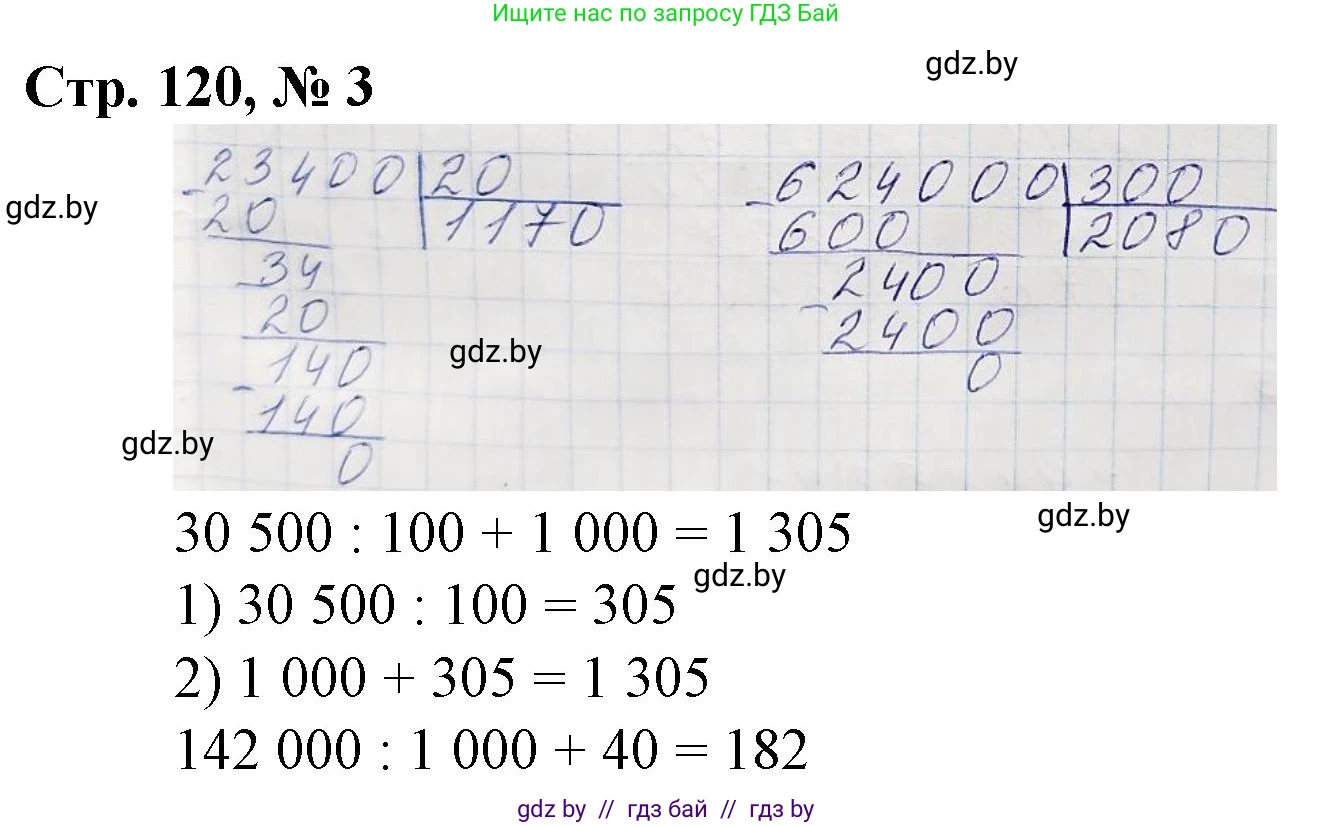 Ищите нас по запросу ГДЗ Бай
Стр. 120, № 3
gdz.by
23400 20
- 20 1170
gdz.by
- 34
20
- 140
140
0
gdz.by
gdz.by
624000 300
- 600 2080
2400
- 2400
0
30 500 : 100 + 1 000 = 1 305
gdz.by
1) 30 500 : 100 = 305
gdz.by
2) 1 000 + 305 = 1 305
142 000 : 1 000 + 40 = 182
gdz by // гдз бай // гдз by